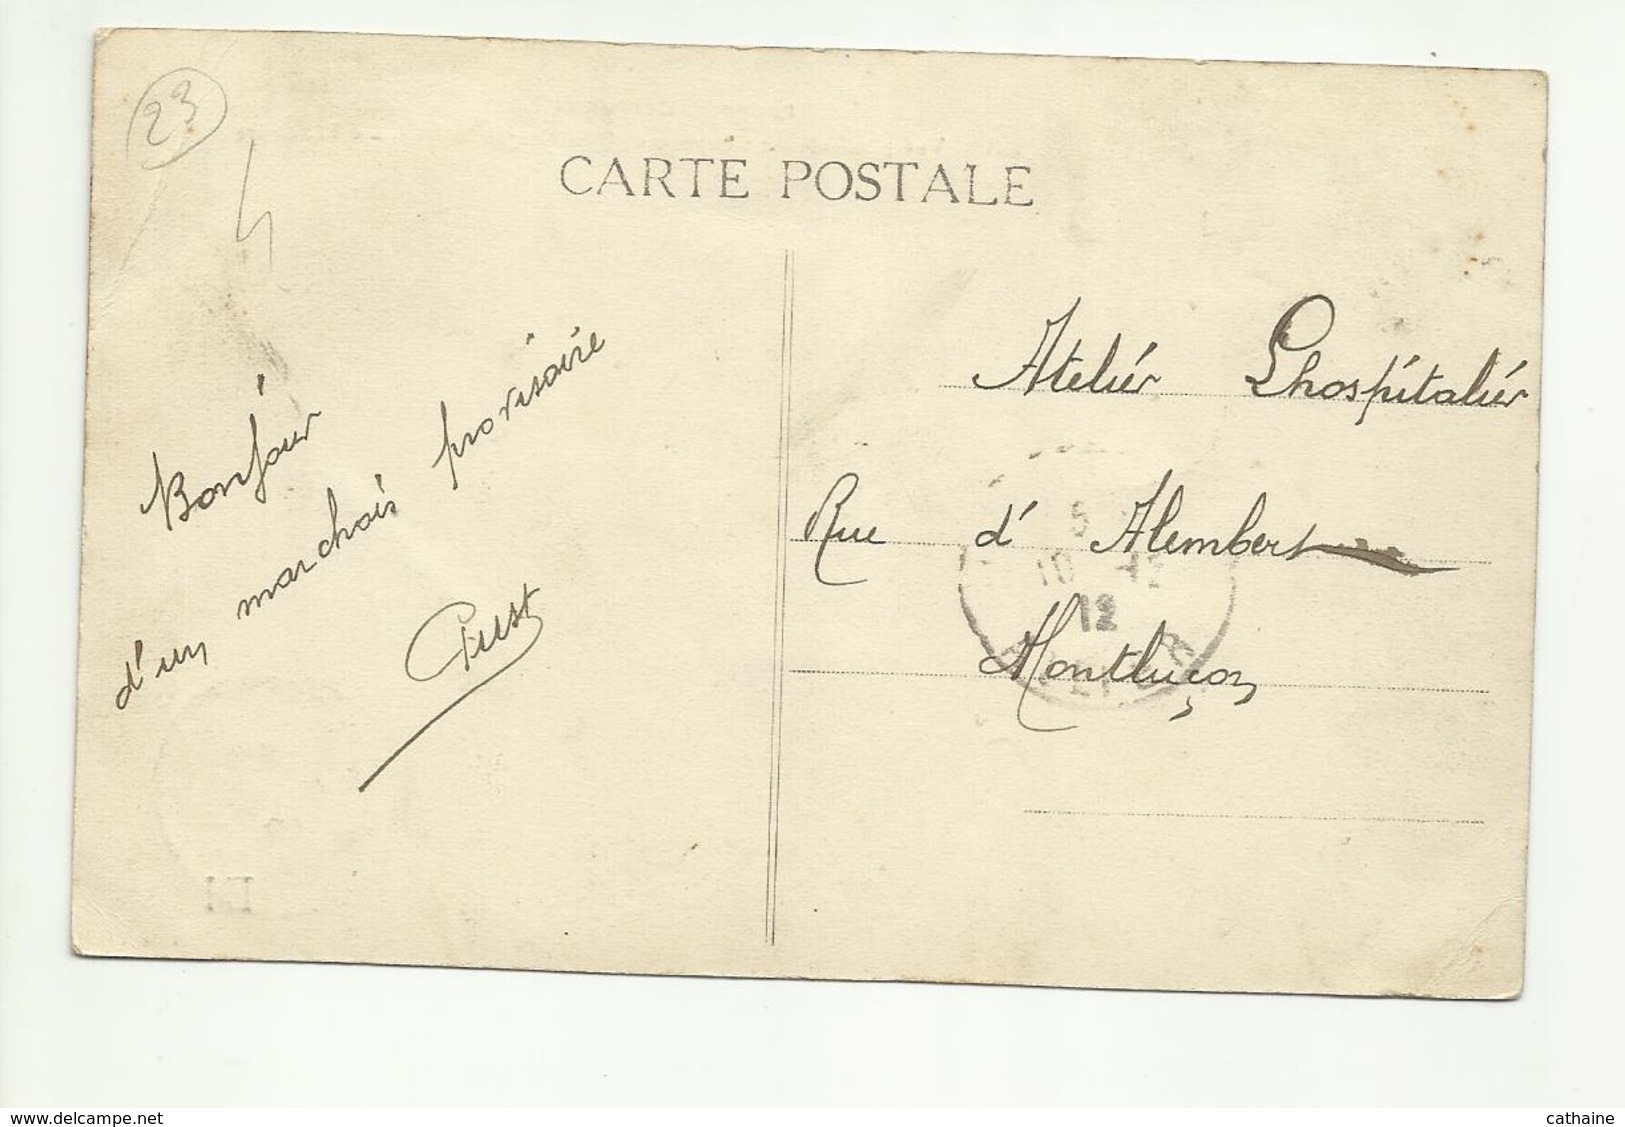 23
CARTE POSTALE
Bonjour
d'un marchois provisoire
Atelier Lhospitalier
Rue d'Alembert
Montluçon
10
12
www.delcampe.net
cathaine